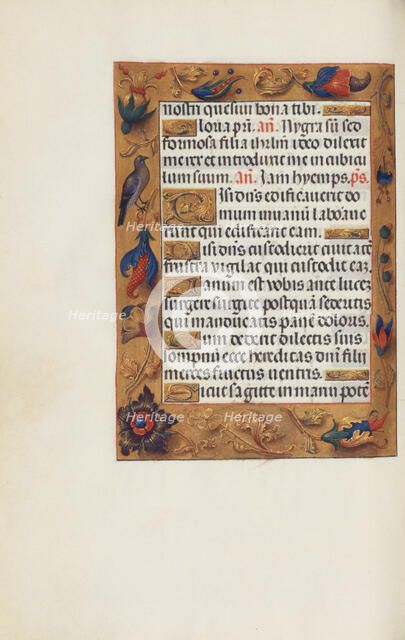 nostri quesiui bona tibi.
Gloria pr̄i. añ. Nygra sū sed
formosa filia ihrl̄m ideo dilexit
me rex et introduxit me in cubicu
lum suum. Añ. Iam hyemps. p̄s.
Nisi dn̄s edificauerit do
mum in uanū laboraue
runt qui edificant eam.
Nisi dn̄s custodierit ciuitatē
frustra vigilat qui custodit eaʒ.
Vanum est vobis ante luceʒ
surgere surgite postquā sederitis
qui manducatis panē doloris.
Cum dederit dilectis suis
sompnū ecce hereditas dn̄i filij
merces fructus ventris.
Sicut sagitte in manu potē
Heritage
Heritage
Heritage
Heritage
Heritage
Heritage